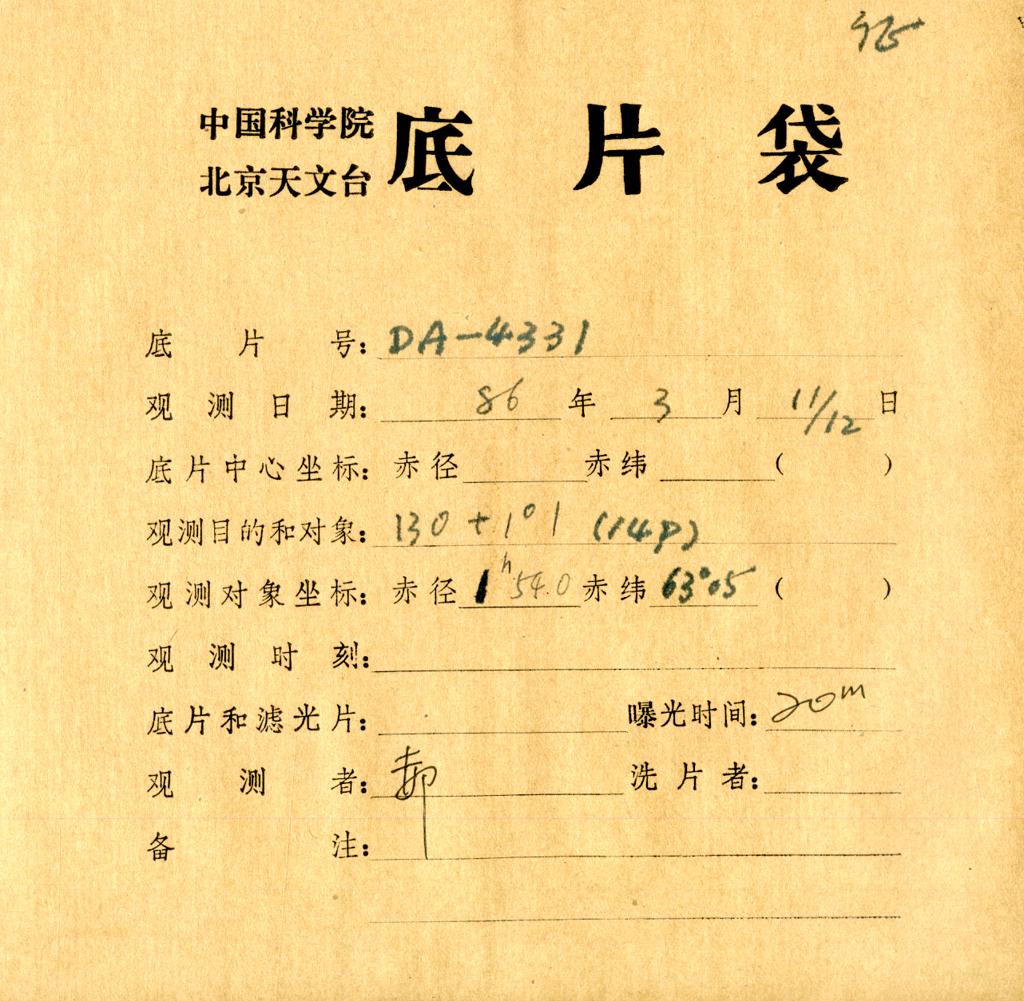 中国科学院
北京天文台
底片袋
底片号：DA-4331
观测日期：86年3月11/12日
底片中心坐标：赤径 赤纬 （ ）
观测目的和对象：130+1°1 (14P)
观测对象坐标：赤径1ʰ54.0赤纬63°05（ ）
观测时刻：
底片和滤光片： 曝光时间：20ᵐ
观测者：郝 洗片者：
备注：